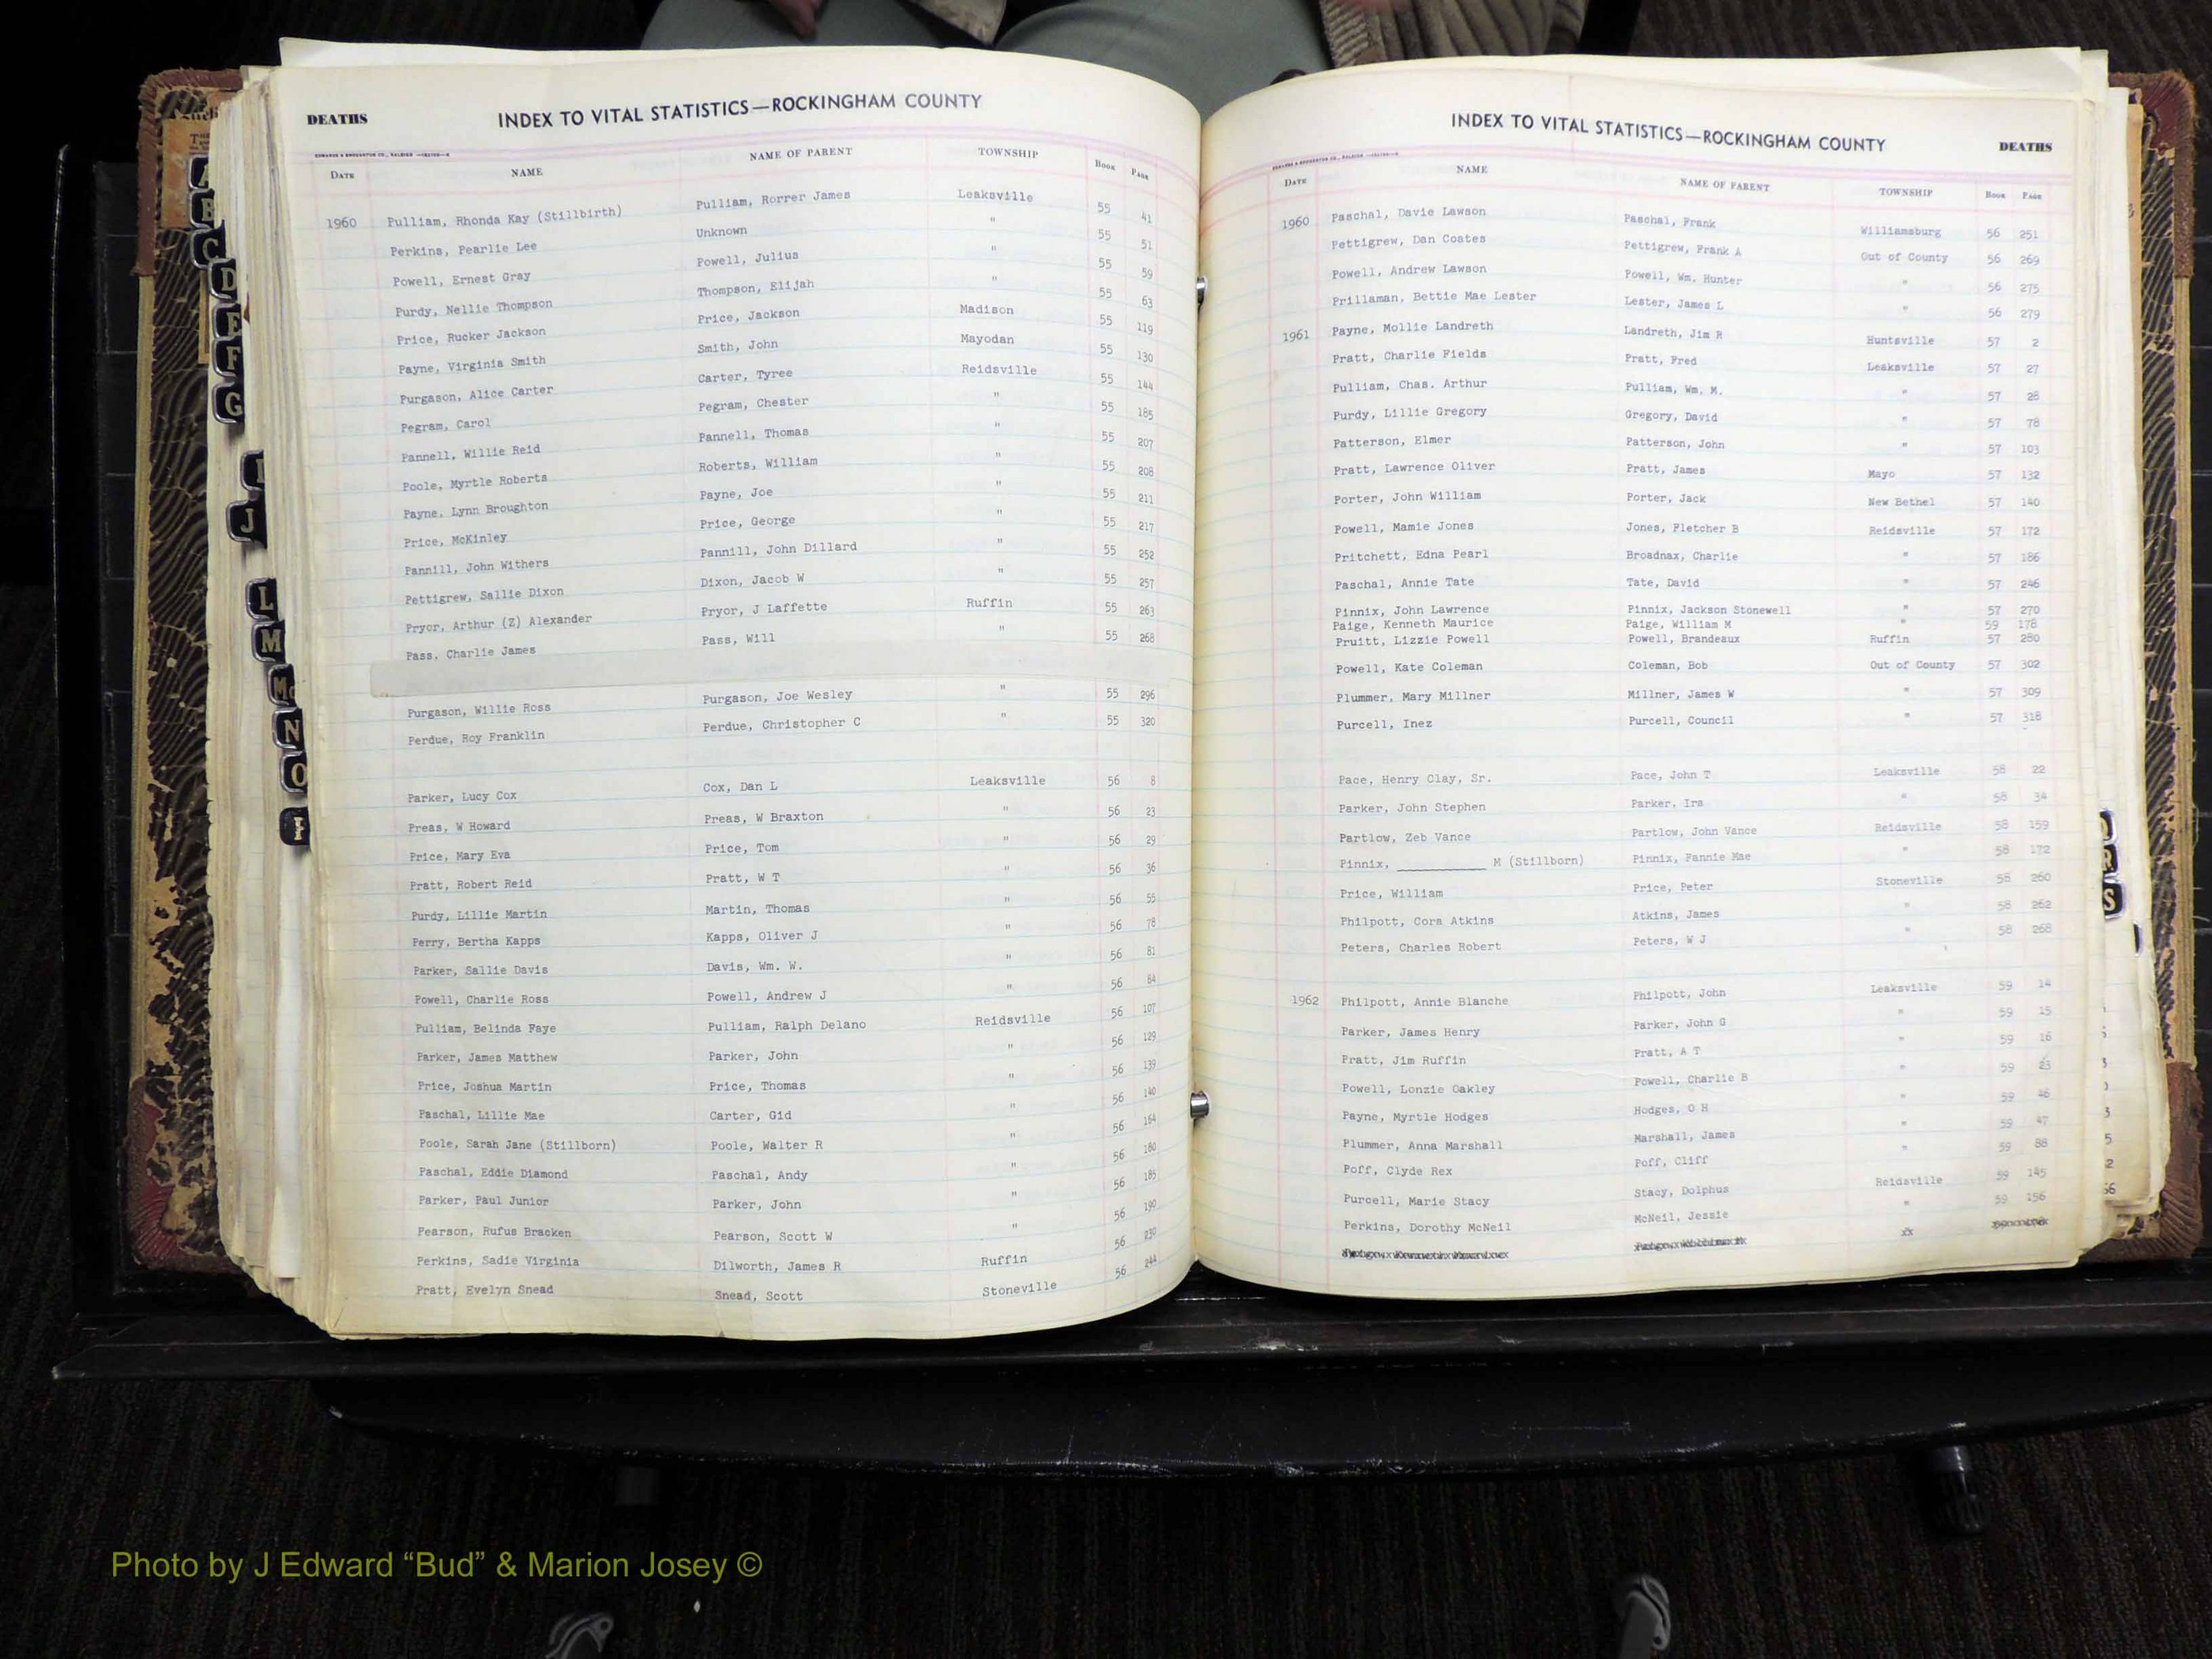 DEATHS
INDEX TO VITAL STATISTICS—ROCKINGHAM COUNTY
DATE NAME NAME OF PARENT TOWNSHIP BOOK PAGE
1960 Pulliam, Rhonda Kay (Stillbirth) Pulliam, Rorrer James Leaksville 55 41
Perkins, Pearlie Lee Unknown " 55 51
Powell, Ernest Gray Powell, Julius " 55 59
Purdy, Nellie Thompson Thompson, Elijah " 55 63
Price, Rucker Jackson Price, Jackson Madison 55 119
Payne, Virginia Smith Smith, John Mayodan 55 130
Purgason, Alice Carter Carter, Tyree Reidsville 55 144
Pegram, Carol Pegram, Chester " 55 185
Pannell, Willie Reid Pannell, Thomas " 55 207
Poole, Myrtle Roberts Roberts, William " 55 208
Payne, Lynn Broughton Payne, Joe " 55 211
Price, McKinley Price, George " 55 217
Pannill, John Withers Pannill, John Dillard " 55 252
Pettigrew, Sallie Dixon Dixon, Jacob W " 55 257
Pryor, Arthur (Z) Alexander Pryor, J Laffette Ruffin 55 263
Pass, Charlie James Pass, Will " 55 268
Purgason, Willie Ross Purgason, Joe Wesley " 55 296
Perdue, Roy Franklin Perdue, Christopher C " 55 320
Parker, Lucy Cox Cox, Dan L Leaksville 56 8
Preas, W Howard Preas, W Braxton " 56 23
Price, Mary Eva Price, Tom " 56 29
Pratt, Robert Reid Pratt, W T " 56 36
Purdy, Lillie Martin Martin, Thomas " 56 55
Perry, Bertha Kapps Kapps, Oliver J " 56 78
Parker, Sallie Davis Davis, Wm. W. " 56 81
Powell, Charlie Ross Powell, Andrew J " 56 84
Pulliam, Belinda Faye Pulliam, Ralph Delano Reidsville 56 107
Parker, James Matthew Parker, John " 56 129
Price, Joshua Martin Price, Thomas " 56 139
Paschal, Lillie Mae Carter, Gid " 56 140
Poole, Sarah Jane (Stillborn) Poole, Walter R " 56 164
Paschal, Eddie Diamond Paschal, Andy " 56 180
Parker, Paul Junior Parker, John " 56 185
Pearson, Rufus Bracken Pearson, Scott W " 56 190
Perkins, Sadie Virginia Dilworth, James R Ruffin 56 230
Pratt, Evelyn Snead Snead, Scott Stoneville 56 244
INDEX TO VITAL STATISTICS—ROCKINGHAM COUNTY
DEATHS
DATE NAME NAME OF PARENT TOWNSHIP BOOK PAGE
1960 Paschal, Davie Lawson Paschal, Frank Williamsburg 56 251
Pettigrew, Dan Coates Pettigrew, Frank A Out of County 56 269
Powell, Andrew Lawson Powell, Wm. Hunter " 56 275
Prillaman, Bettie Mae Lester Lester, James L " 56 279
1961 Payne, Mollie Landreth Landreth, Jim R Huntsville 57 2
Pratt, Charlie Fields Pratt, Fred Leaksville 57 27
Pulliam, Chas. Arthur Pulliam, Wm. M. " 57 28
Purdy, Lillie Gregory Gregory, David " 57 78
Patterson, Elmer Patterson, John " 57 103
Pratt, Lawrence Oliver Pratt, James Mayo 57 132
Porter, John William Porter, Jack New Bethel 57 140
Powell, Mamie Jones Jones, Fletcher B Reidsville 57 172
Pritchett, Edna Pearl Broadnax, Charlie " 57 186
Paschal, Annie Tate Tate, David " 57 246
Pinnix, John Lawrence Pinnix, Jackson Stonewell " 57 270
Paige, Kenneth Maurice Paige, William M " 59 178
Pruitt, Lizzie Powell Powell, Brandeaux Ruffin 57 280
Powell, Kate Coleman Coleman, Bob Out of County 57 302
Plummer, Mary Millner Millner, James W " 57 309
Purcell, Inez Purcell, Council " 57 318
Pace, Henry Clay, Sr. Pace, John T Leaksville 58 22
Parker, John Stephen Parker, Ira " 58 34
Partlow, Zeb Vance Partlow, John Vance Reidsville 58 159
Pinnix, ____________ M (Stillborn) Pinnix, Fannie Mae " 58 172
Price, William Price, Peter Stoneville 58 260
Philpott, Cora Atkins Atkins, James " 58 262
Peters, Charles Robert Peters, W J " 58 268
1962 Philpott, Annie Blanche Philpott, John Leaksville 59 14
Parker, James Henry Parker, John G " 59 15
Pratt, Jim Ruffin Pratt, A T " 59 16
Powell, Lonzie Oakley Powell, Charlie B " 59 23
Payne, Myrtle Hodges Hodges, O H " 59 46
Plummer, Anna Marshall Marshall, James " 59 47
Poff, Clyde Rex Poff, Cliff " 59 88
Purcell, Marie Stacy Stacy, Dolphus Reidsville 59 145
Perkins, Dorothy McNeil McNeil, Jessie " 59 156
xx
A
B
C
D
E
F
G
I
J
L
M
Mc
N
O
R
S
Photo by J Edward “Bud” & Marion Josey ©